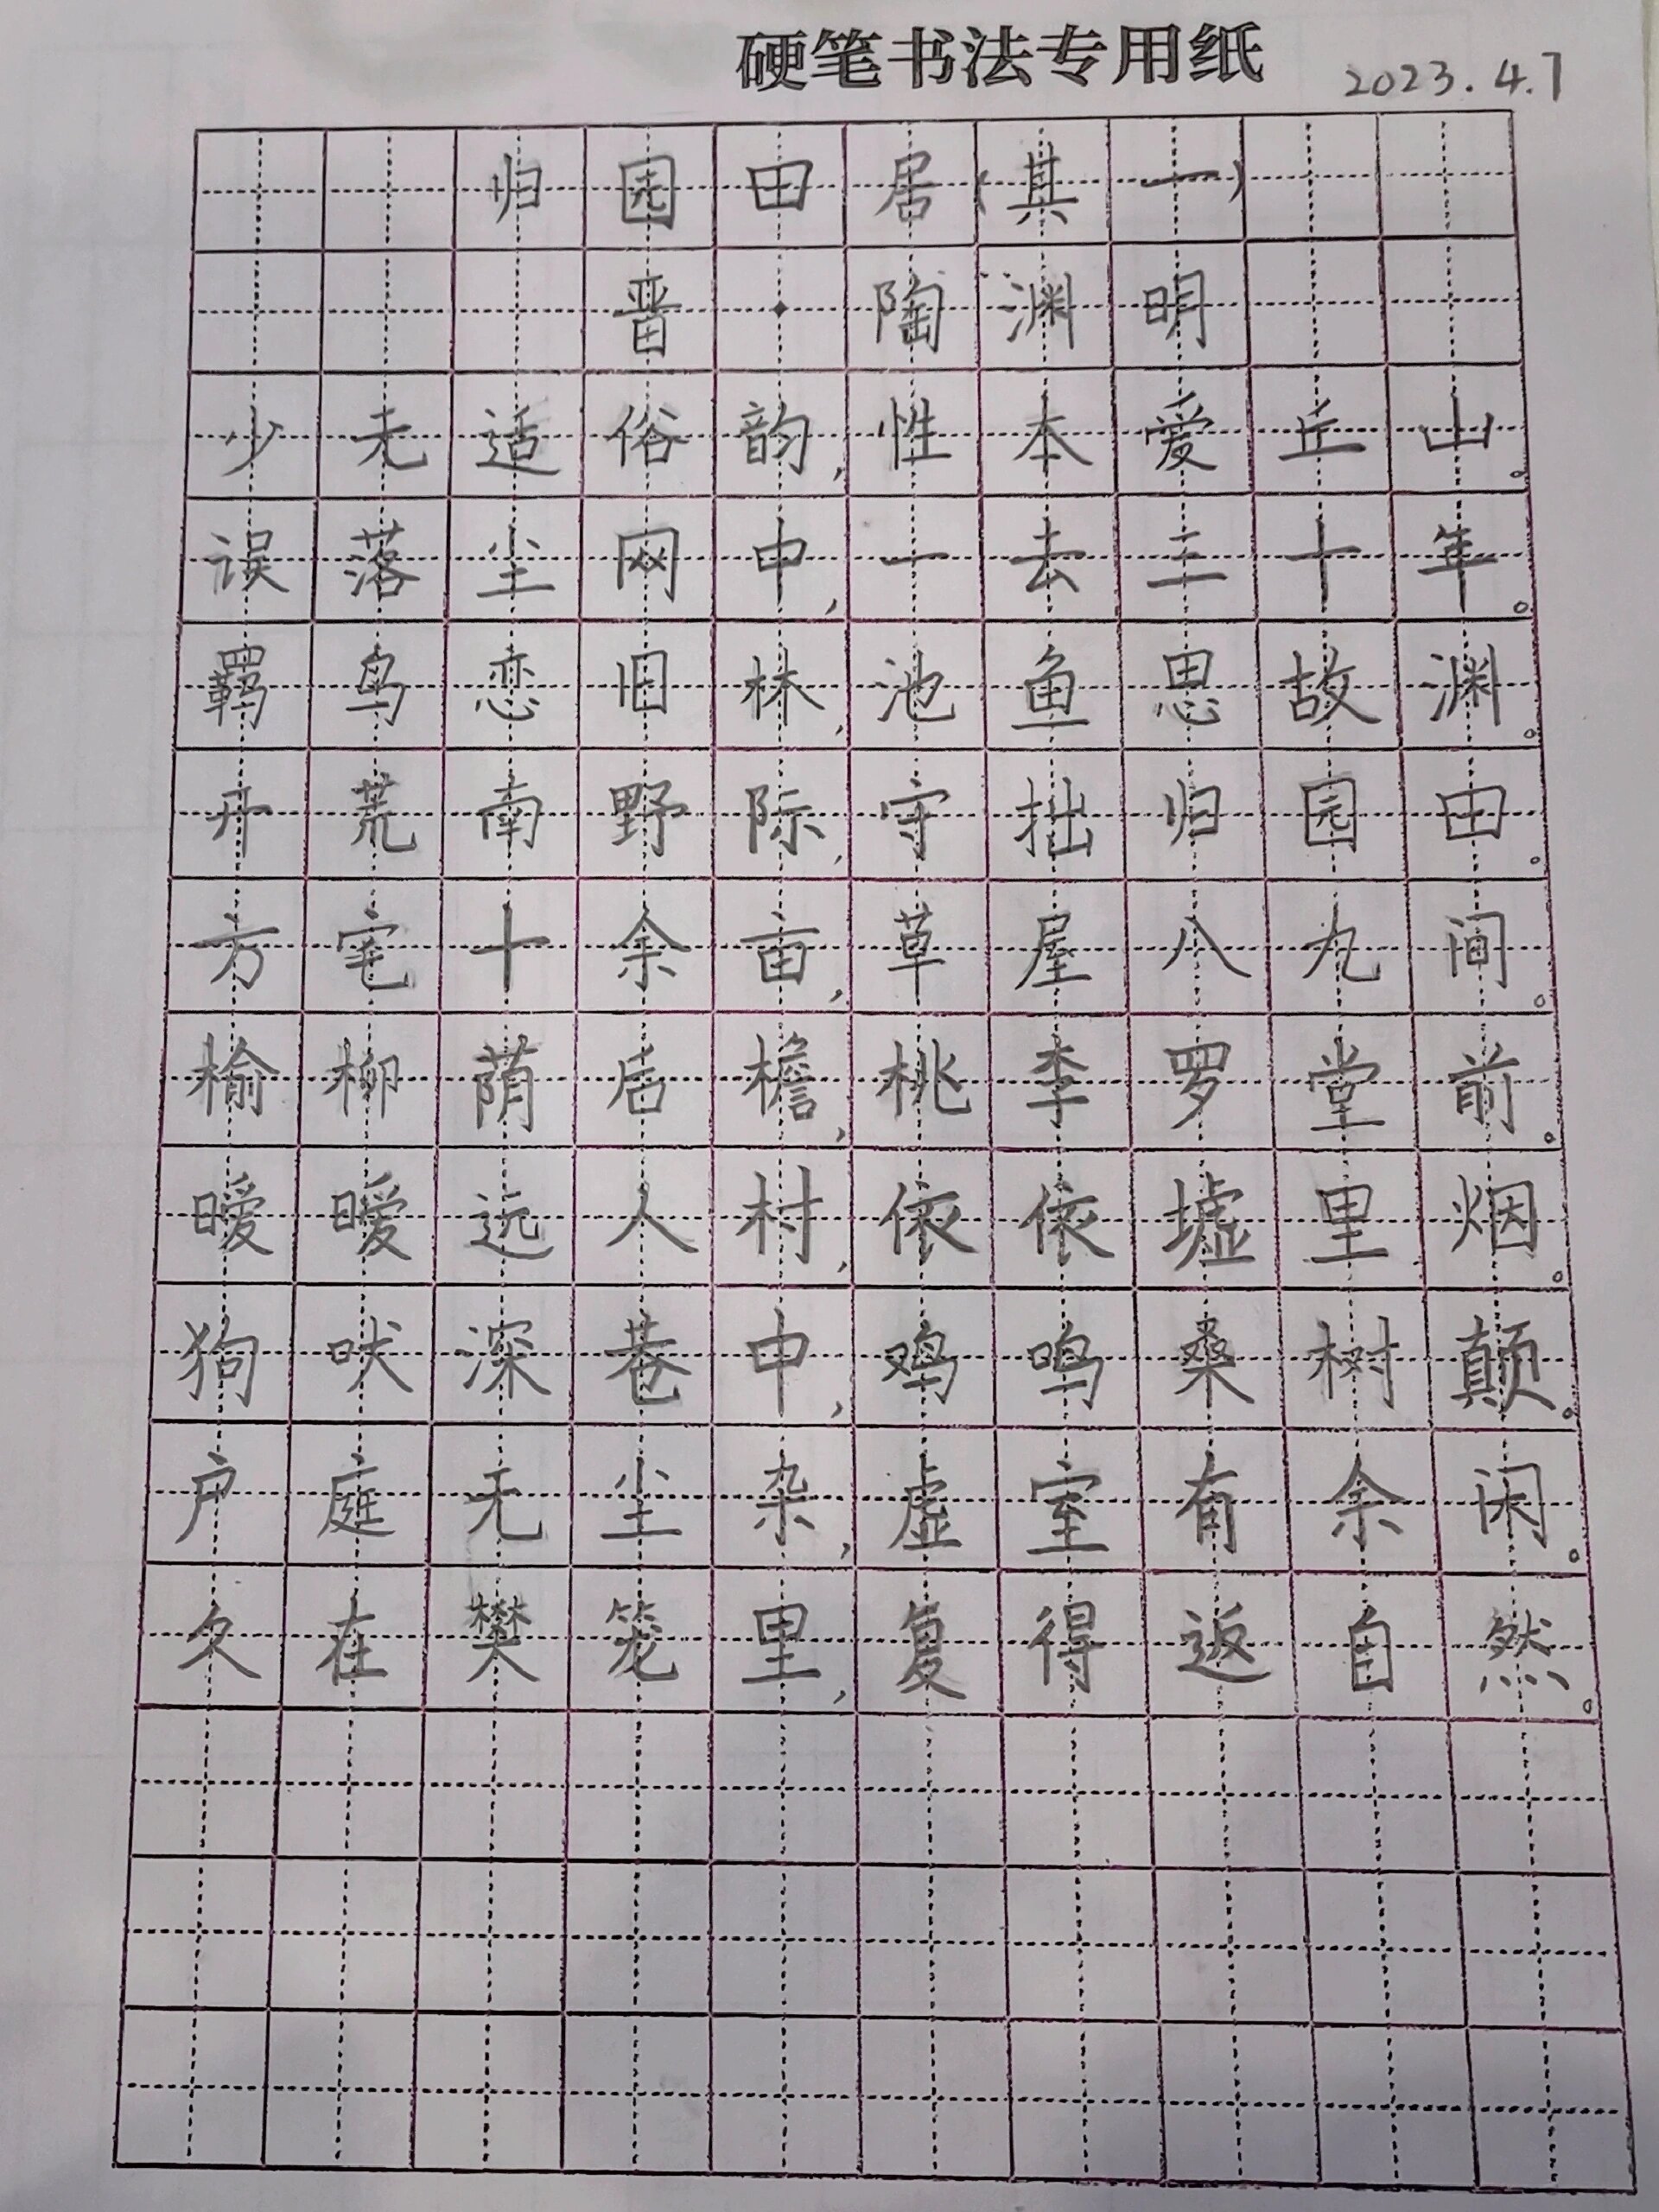 硬笔书法专用纸
2023.4.7
归园田居(其一)
晋·陶渊明
少无适俗韵,性本爱丘山。
误落尘网中,一去三十年。
羁鸟恋旧林,池鱼思故渊。
开荒南野际,守拙归园田。
方宅十余亩,草屋八九间。
榆柳荫后檐,桃李罗堂前。
暧暧远人村,依依墟里烟。
狗吠深巷中,鸡鸣桑树颠。
户庭无尘杂,虚室有余闲。
久在樊笼里,复得返自然。